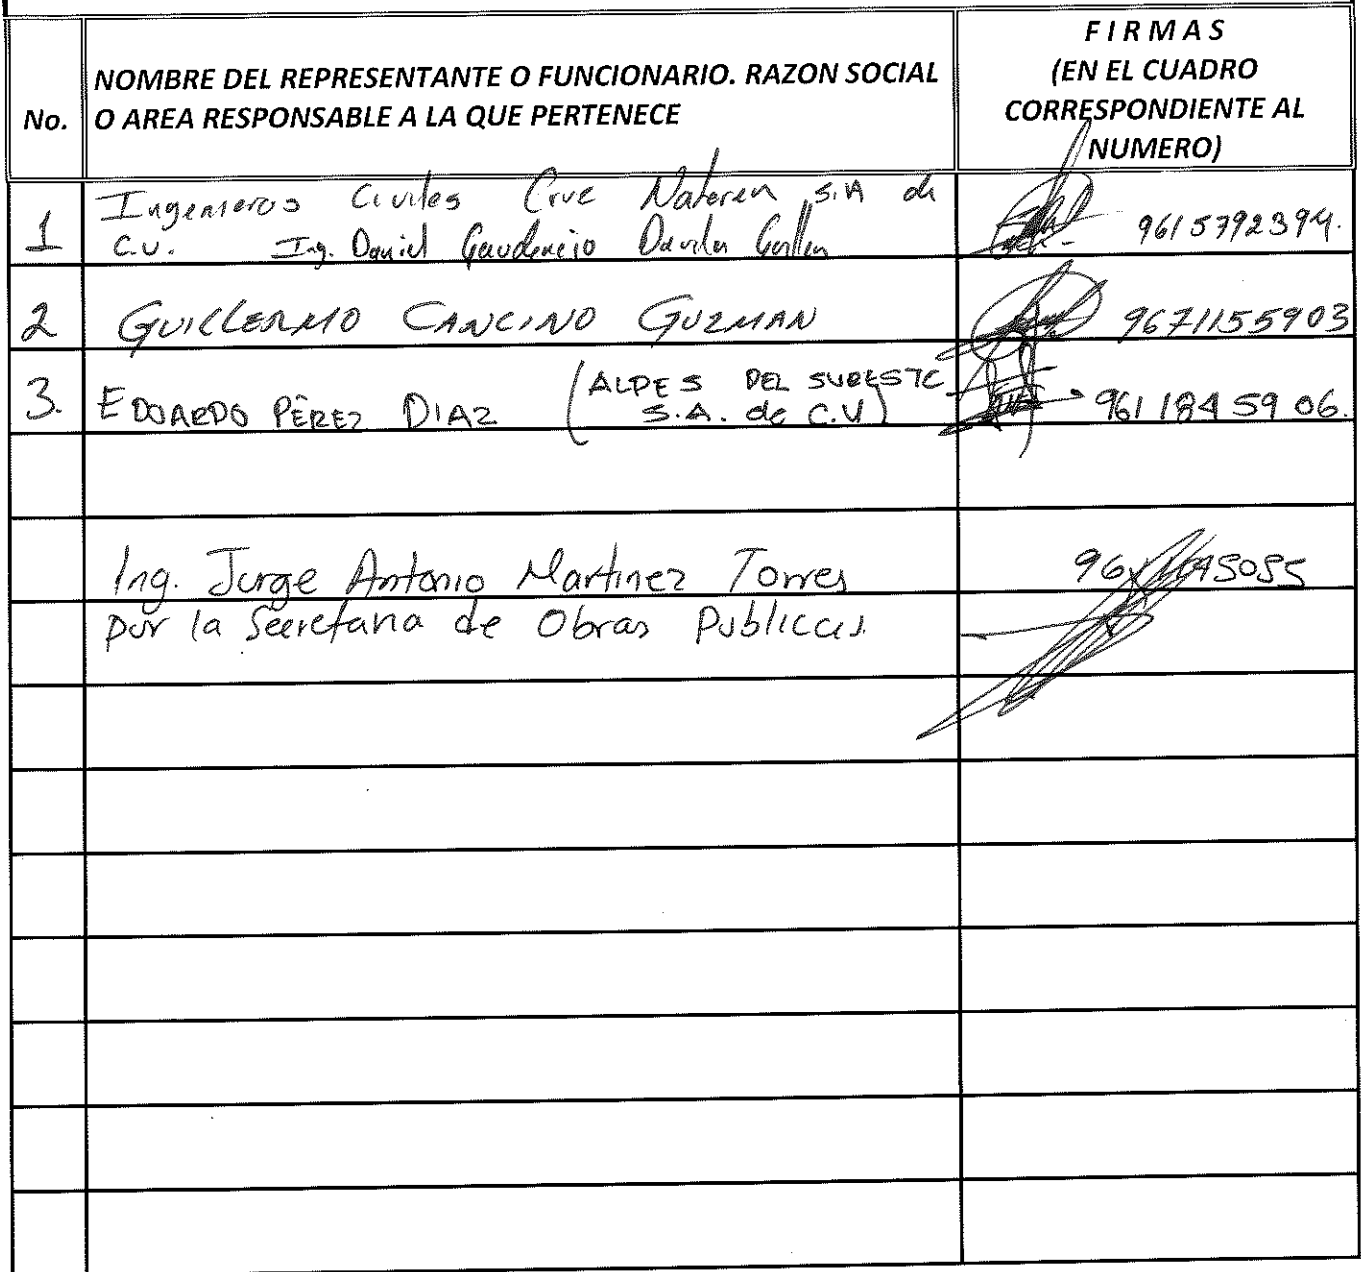 No.
NOMBRE DEL REPRESENTANTE O FUNCIONARIO. RAZON SOCIAL
O AREA RESPONSABLE A LA QUE PERTENECE
FIRMAS
(EN EL CUADRO
CORRESPONDIENTE AL
NUMERO)
1 Ingenieros Civiles Cruz Natoren S.A de
C.V. Ing. Daniel Gaudencio Davila 9615792394.
2 GUILLERMO CANCINO GUZMAN 9671155903
3. EDUARDO PÉREZ DIAZ (ALPES DEL SURESTE
S.A. de C.V) 961 184 59 06.
Ing. Jorge Antonio Martinez Torres
por la Secretaria de Obras Publicas.